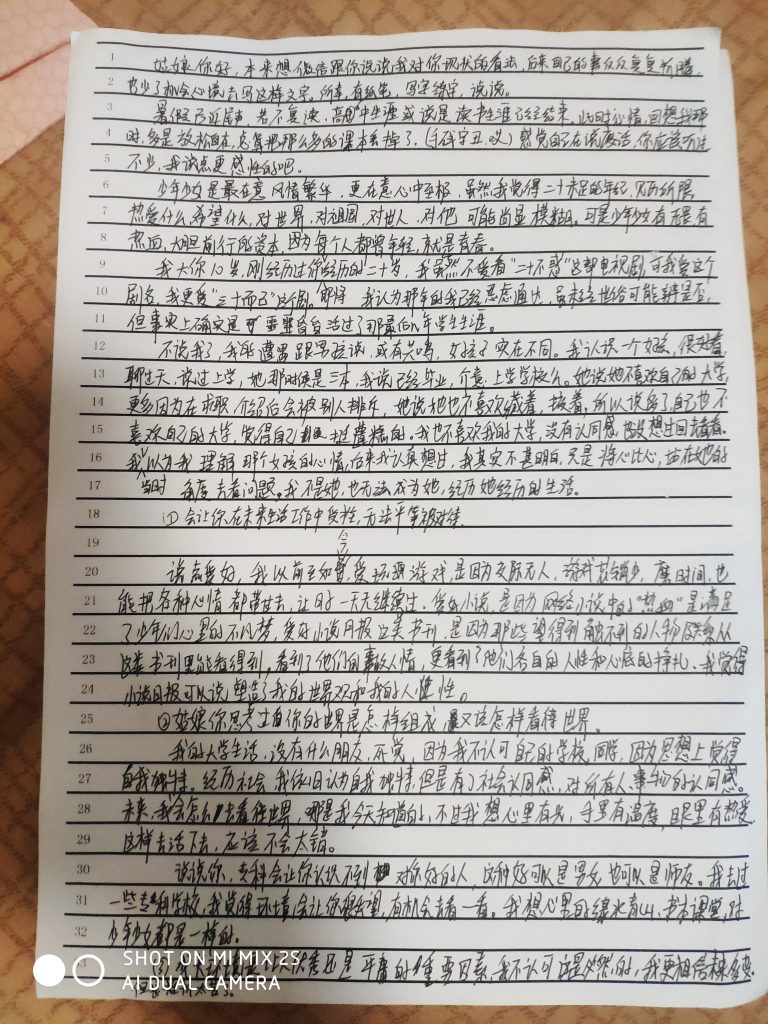 1 姑娘你好,本来想微信跟你说说我对你现状的看法,后来自己的事反反复复折腾,
2 少了机会心境去写这样文字。所幸,有纸笔,写字练字,说说。
3 暑假已近尾声,若不复读,高中生涯或说是读书生涯已经结束,此时心情,回想我那
4 时,多是放松自在,总算把那么多的课本丢掉了,(勺 字丑,哎)感觉自己在说废话,你应该听过
5 不少,我说点更感性的吧。
6 少年少女是最在意风情繁华,更在意心中至极,虽然我觉得二十未足的年纪,见历所限
7 热爱什么,希望什么,对世界,对祖国,对世人,对他,可能尚显模糊。可是少年少女有 是有
8 热血,大胆前行的资本,因为每个人都曾年轻,就是青春。
9 我大你10岁,刚经历过你经历的二十岁,我虽然不爱看"二十不惑"这部电视剧,可我爱这个
10 剧名,我更爱"三十而已"这个剧。 我认为那年的我已经思虑通达,虽未经世俗可能辨是否,
11 但事实上确实是 活过了那最后几年学生生涯。
12 不说我了,我的遭遇跟男孩谈,或有共鸣,女孩子实在不同。我认识一个女孩,
13 聊过天,谈过上学,她那时候是三本,我说已经毕业,介意上学学校么。她说她不喜欢自己的大学,
14 更多因为在求职,介绍后会被别人排斥,她说她也不喜欢藏着,掖着,所以说多了自己也不
15 喜欢自己的大学,觉得自己 挺糟糕的。我也不喜欢我的大学,没有认同感,也没想过回去看看。
16 我以为我理解那个女孩的心情,后来我认真想过,我其实不甚明白,只是将心比心,站在她的
17 当时 角度去看问题。我不是她,也无法成为她,经历她经历的生活。
18 ①会让你在未来生活工作中受挫,无法平等被对待。
19
20 说点爱好,我以前至如今,爱玩 游戏,是因为交际无人, 花销少,磨时间,也
21 能把各种心情都带过去,让日子一天天继续过。爱好小说,是因为网络小说中的"热血"是满足
22 了少年们心里的不凡梦,爱好小说月报这类书刊,是因为那些望得到触不到的人称 从
23 这类书刊里能看得到,看到了他们的事故人情,更看到了他们各自的人性和心底的挣扎。我觉得
24 小说月报可以说塑造了我的世界观和我的人性。
25 ②姑娘你思考过自你的世界是怎样组成,又该怎样看待世界。
26 我的大学生活,没有什么朋友,死党,因为我不认可自己的学校,同学,因为思想上觉得
27 自我独特。经历社会,我依旧认为自我独特,但是有了社会认同感,对所有人,事物的认同感。
28 未来,我会怎么去看待世界,哪是我今天知道的,不过我想心里有光,手里有温度,眼里有热爱
29 这样去活下去,应该不会太错。
30 说说你,专科会让你认识不到 对你好的人,这种好可以是男女,也可以是师友。我去过
31 一些专科学校,我觉得环境会让你很失望,有机会去看一看。我想心里的绿水青山,书本课堂,对
32 少年少女都是一样的。
还是平庸的重要因素,我不认可这是必然的,我更相信
SHOT ON MI MIX 2S
AI DUAL CAMERA